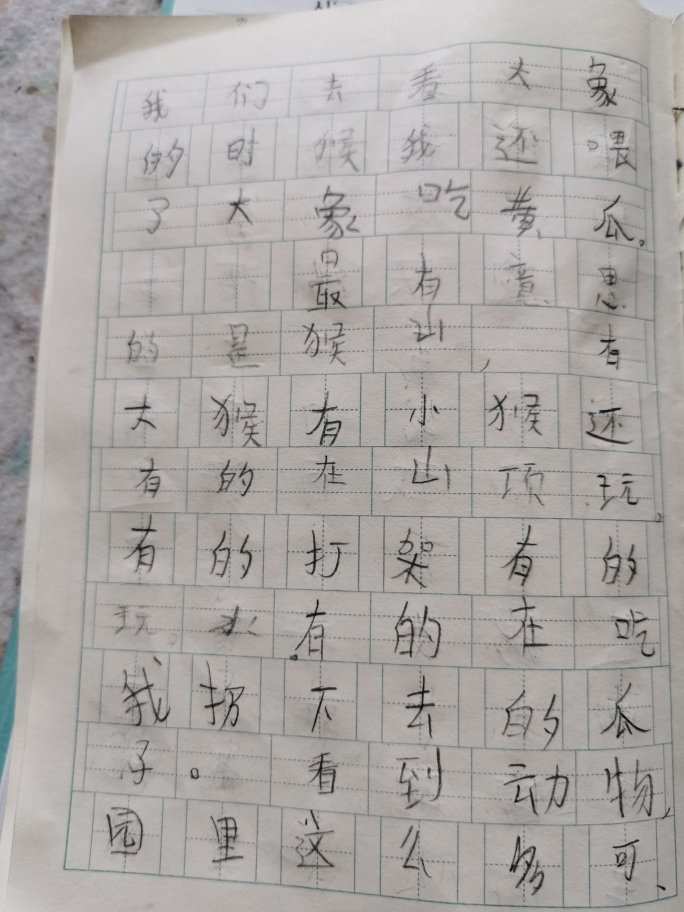 我们去看大象
的时候我还喂
了大象吃黄瓜。
最有意思
的是猴山,有
大猴有小猴还
有的在山顶玩,
有的打架有的
玩水。有的在吃
我扔下去的瓜
子。看到动物,
园里这么多可、